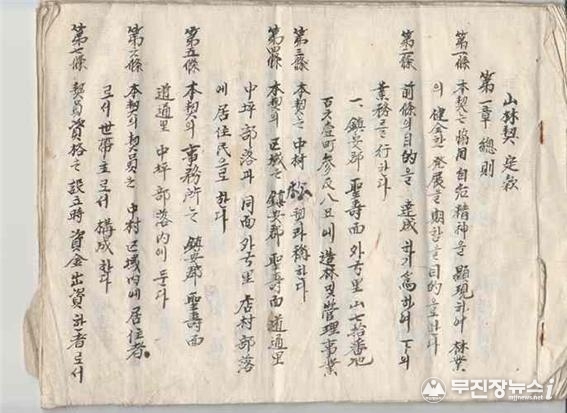 山林契 定款
第一章 總則
第一條 本契는 協同自治精神을 顯現하야 林業
의 健全한 發展을 期함을 目的으로 한다
第二條 前條의 目的을 達成하기 爲하야 下의
業務를 行한다
一. 鎭安郡 聖壽面 外弓里 山七拾番地
町參反八 에 造林 및 管理事業
第三條 本契는 中村 松契라 稱한다
第四條 本契의 区域는 鎭安郡 聖壽面 道通里
中坪部落과 同面 外弓里 店村部落
에 居住民으로 한다
第五條 本契의 事務所는 鎭安郡 聖壽面
道通里 中坪部落內에 둔다
第六條 本契의 契員는 中村 区域內에 居住者
로서 世帶主로서 構成한다
第七條 契員資格은 設立時 資金出資한 者로서
무진장뉴스 i